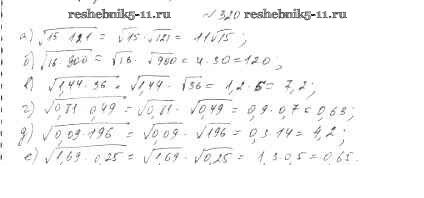 reshebnik5-11.ru № 320 reshebnik5-11.ru
а) √15·121 = √15·√121 = 11√15;
б) √16·900 = √16·√900 = 4·30=120,
в) √1,44·36 = √1,44·√36 = 1,2·6= 7,2;
г) √0,81·0,49 = √0,81·√0,49 = 0,9·0,7= 0,63;
д) √0,09·196 = √0,09·√196 = 0,3·14= 4,2;
е) √1,69·0,25 = √1,69·√0,25 = 1,3·0,5=0,65.